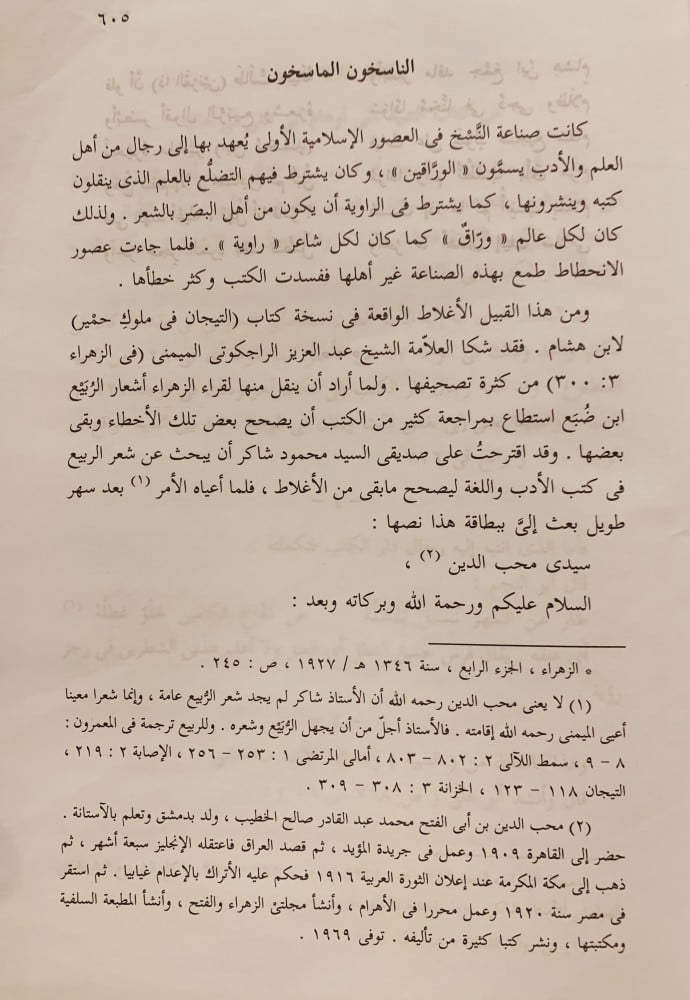 ٦٠٥
الناسخون الماسخون
كانت صناعة النَّسْخ فى العصور الإسلامية الأولى يُعهد بها إلى رجال من أهل
العلم والأدب يسمَّون « الورَّاقين » ، وكان يشترط فيهم التضلُّع بالعلم الذى ينقلون
كتبه وينشرونها ، كما يشترط فى الراوية أن يكون من أهل البصَر بالشعر . ولذلك
كان لكل عالم « ورّاقٌ » كما كان لكل شاعر « راوية » . فلما جاءت عصور
الانحطاط طمع بهذه الصناعة غير أهلها ففسدت الكتب وكثر خطأها .
ومن هذا القبيل الأغلاط الواقعة فى نسخة كتاب (التيجان فى ملوكِ حمْير)
لابن هشام . فقد شكا العلاّمة الشيخ عبد العزيز الراجكوتى الميمنى (فى الزهراء
٣ : ٣٠٠) من كثرة تصحيفها . ولما أراد أن ينقل منها لقراء الزهراء أشعار الرُبَيْع
ابن ضُبَع استطاع بمراجعة كثير من الكتب أن يصحح بعض تلك الأخطاء وبقى
بعضها . وقد اقترحتُ على صديقى السيد محمود شاكر أن يبحث عن شعر الربيع
فى كتب الأدب واللغة ليصحح مابقى من الأغلاط ، فلما أعياه الأمر (١) بعد سهر
طويل بعث إلىَّ ببطاقة هذا نصها :
سيدى محب الدين (٢) ،
السلام عليكم ورحمة الله وبركاته وبعد :
* الزهراء ، الجزء الرابع ، سنة ١٣٤٦ هـ / ١٩٢٧ ، ص : ٢٤٥ .
(١) لا يعنى محب الدين رحمه الله أن الأستاذ شاكر لم يجد شعر الرُبيع عامة ، وإنما شعرا معينا
أعيى الميمنى رحمه الله إقامته . فالأستاذ أجلّ من أن يجهل الرُبَيْع وشعره . وللربيع ترجمة فى المعمرون :
٨ – ٩ ، سمط اللآلى ٢ : ٨٠٢ – ٨٠٣ ، أمالى المرتضى ١ : ٢٥٣ – ٢٥٦ ، الإصابة ٢ : ٢١٩ ،
التيجان ١١٨ – ١٢٣ ، الخزانة ٣ : ٣٠٨ – ٣٠٩ .
(٢) محب الدين بن أبى الفتح محمد عبد القادر صالح الخطيب ، ولد بدمشق وتعلم بالآستانة .
حضر إلى القاهرة ١٩٠٩ وعمل فى جريدة المؤيد ، ثم قصد العراق فاعتقله الإنجليز سبعة أشهر ، ثم
ذهب إلى مكة المكرمة عند إعلان الثورة العربية ١٩١٦ فحكم عليه الأتراك بالإعدام غيابيا . ثم استقر
فى مصر سنة ١٩٢٠ وعمل محررا فى الأهرام ، وأنشأ مجلتىْ الزهراء والفتح ، وأنشأ المطبعة السلفية
ومكتبتها ، ونشر كتبا كثيرة من تأليفه . توفى ١٩٦٩ .